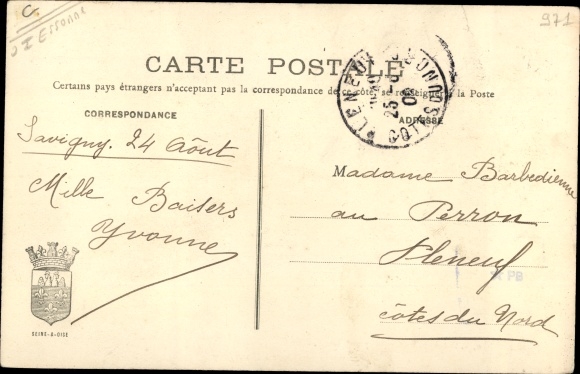 C.
ESSONNE
971
CARTE POSTALE
Certains pays étrangers n'acceptant pas la correspondance de ce côté, se renseigner à la Poste
CORRESPONDANCE
ADRESSE
PLENEUF
25
09
COTES DU NORD
Savigny. 24 Aôut
Mille Baisers
Yvonne
Madame Barbedienne
au Perron
Pleneuf
côtes du Nord
PB
SEINE-&-OISE